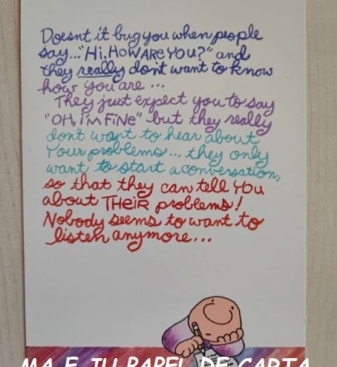 Doesnt it bug you when people
say..."Hi. HOW ARE YOU?" and
they really don't want to know
how you are...
They just expect you to say
"OH, i'm FiNe" but they really
don't want to hear about
Your problems... they only
want to start a conversation,
so that they can tell You
about THEiR problems!
Nobody seems to want to
listen anymore...
MA E JU PAPEL DE CARTA